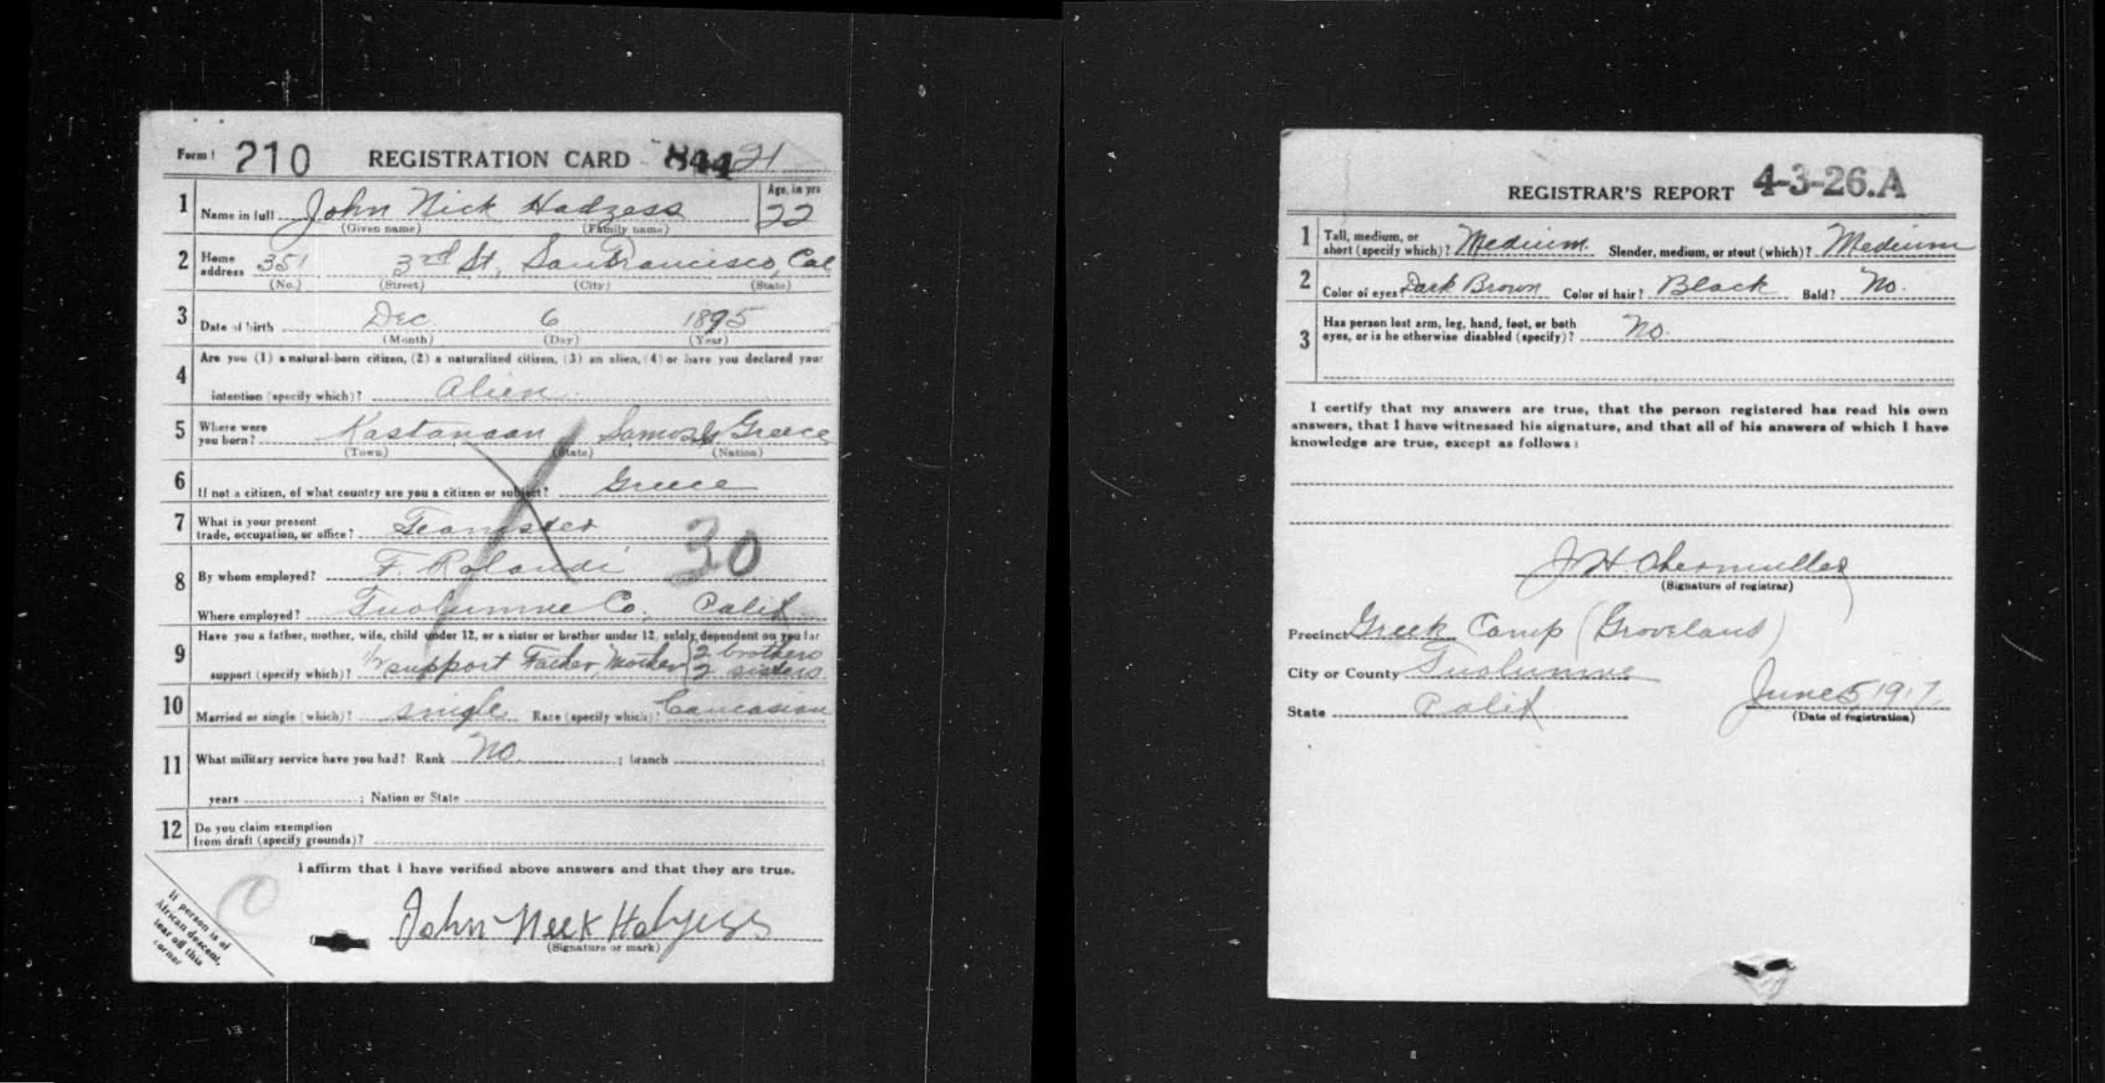 Form 1 210 REGISTRATION CARD 844 21
1 Name in full John Nick Hadzass Age, in yrs 22
(Given name) (Family name)
2 Home address 351 3rd St, San Francisco, Cal
(No.) (Street) (City) (State)
3 Date of birth Dec. 6 1895
(Month) (Day) (Year)
Are you (1) a natural-born citizen, (2) a naturalized citizen, (3) an alien, (4) or have you declared your
4 intention (specify which)? Alien
5 Where were you born? Kastanaan Samos Greece
(Town) (State) (Nation)
6 If not a citizen, of what country are you a citizen or subject? Greece
7 What is your present trade, occupation, or office? Teamster
30
8 By whom employed? F. Rolandi
Where employed? Tuolumne Co. Calif
9 Have you a father, mother, wife, child under 12, or a sister or brother under 12, solely dependent on you for
support (specify which)? 1/2 support Father, Mother 2 brothers 2 sisters
10 Married or single (which)? single Race (specify which)? Caucasian
11 What military service have you had? Rank No. ; branch ;
years ; Nation or State
12 Do you claim exemption
from draft (specify grounds)?
I affirm that I have verified above answers and that they are true.
John Neek
(Signature or mark)
If person is of
African descent,
tear off this
corner
REGISTRAR'S REPORT 4-3-26.A
1 Tall, medium, or
short (specify which)? Medium. Slender, medium, or stout (which)? Medium
2 Color of eyes? Dark Brown Color of hair? Black Bald? No.
3 Has person lost arm, leg, hand, foot, or both
eyes, or is he otherwise disabled (specify)? No.
I certify that my answers are true, that the person registered has read his own
answers, that I have witnessed his signature, and that all of his answers of which I have
knowledge are true, except as follows:
J H. Obermuller
(Signature of registrar)
Precinct Greek Camp (Groveland)
City or County Tuolumne
State Calif June 5 1917
(Date of registration)